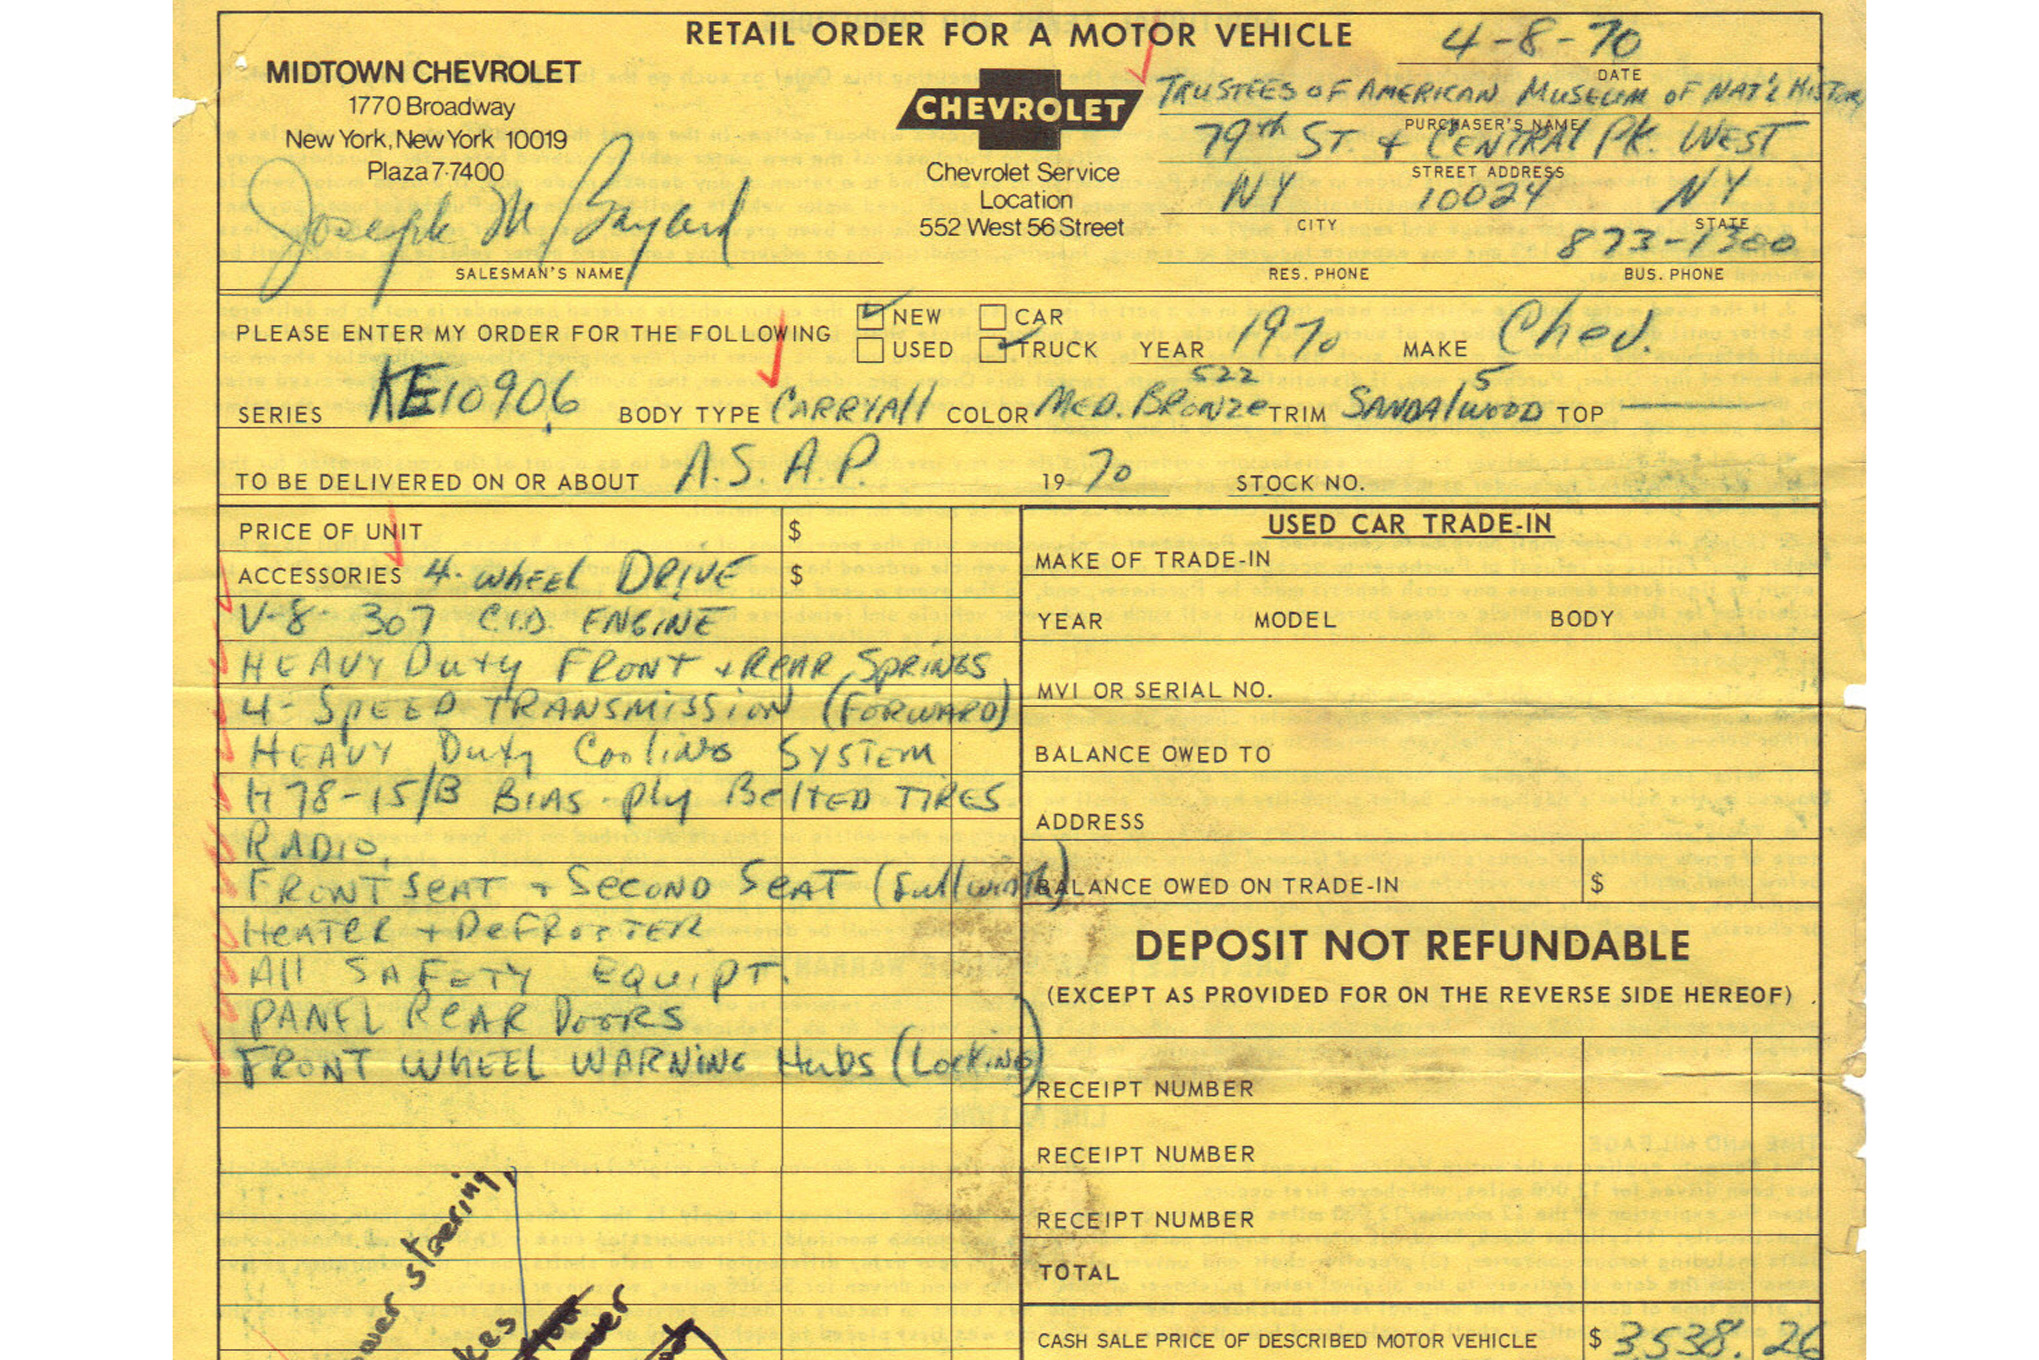 RETAIL ORDER FOR A MOTOR VEHICLE
4-8-70
DATE
MIDTOWN CHEVROLET
1770 Broadway
New York, New York 10019
Plaza 7-7400
CHEVROLET
Chevrolet Service
Location
552 West 56 Street
TRUSTEES OF AMERICAN MUSEUM OF NAT'L HISTORY
PURCHASER'S NAME
79th ST. + CENTRAL PK. WEST
STREET ADDRESS
NY 10024 NY
CITY STATE
873-1300
RES. PHONE BUS. PHONE
Joseph M
SALESMAN'S NAME
PLEASE ENTER MY ORDER FOR THE FOLLOWING
NEW CAR
USED TRUCK YEAR 1970 MAKE Chev.
522 5
SERIES KE10906 BODY TYPE CARRYAll COLOR MED. BRONZE TRIM SANDAlWOOD TOP
TO BE DELIVERED ON OR ABOUT A.S.A.P. 1970 STOCK NO.
PRICE OF UNIT $
ACCESSORIES 4-WHEEL DRIVE $
V-8 307 C.I.D. ENGINE
HEAVY Duty FRONT + REAR SPRINGS
4-SPEED TRANSMISSION (FORWARD)
HEAVY Duty Cooling SYSTEM
H78-15/B BIAS-ply BelTED TIRES
RADIO.
FRONT SEAT + SECOND SEAT (full width)
HEATER + DEFROSTER
All SAFETY EQUIPT.
PANEL REAR DOORS
FRONT WHEEL WARNING Hubs (Locking)
steering
USED CAR TRADE-IN
MAKE OF TRADE-IN
YEAR MODEL BODY
MVI OR SERIAL NO.
BALANCE OWED TO
ADDRESS
BALANCE OWED ON TRADE-IN $
DEPOSIT NOT REFUNDABLE
(EXCEPT AS PROVIDED FOR ON THE REVERSE SIDE HEREOF)
RECEIPT NUMBER
RECEIPT NUMBER
RECEIPT NUMBER
TOTAL
CASH SALE PRICE OF DESCRIBED MOTOR VEHICLE $ 3,538.26